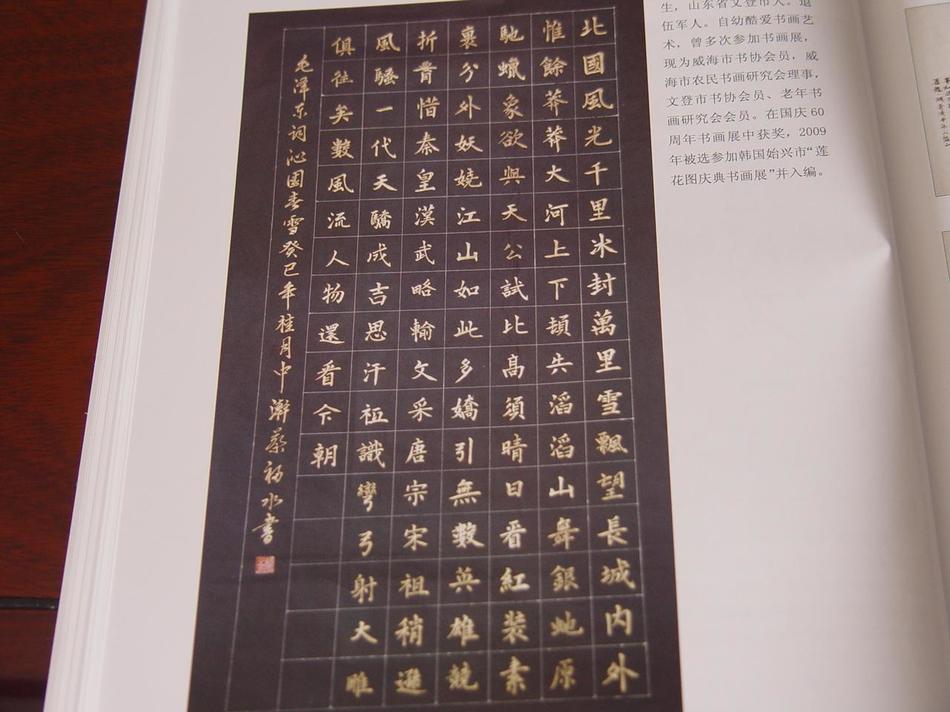 北國風光千里冰封萬里雪飄望長城內外
惟餘莽莽大河上下頓失滔滔山舞銀虵原
馳蠟象欲與天公試比高須晴日看紅裝素
裹分外妖嬈江山如此多嬌引無數英雄競
折惜秦皇漢武略輸文采唐宗宋祖稍遜
風騷一代天驕成吉思汗祗識彎弓射大雕
俱往矣數風流人物還看今朝
毛泽东词沁园春雪癸巳年桂月中澣蔡福水書
生，山东省文登市人。退
伍军人。自幼酷爱书画艺
术，曾多次参加书画展，
现为威海市书协会员，威
海市农民书画研究会理事，
文登市书协会员、老年书
画研究会会员。在国庆 60
周年书画展中获奖，2009
年被选参加韩国始兴市“莲
花图庆典书画展”并入编。